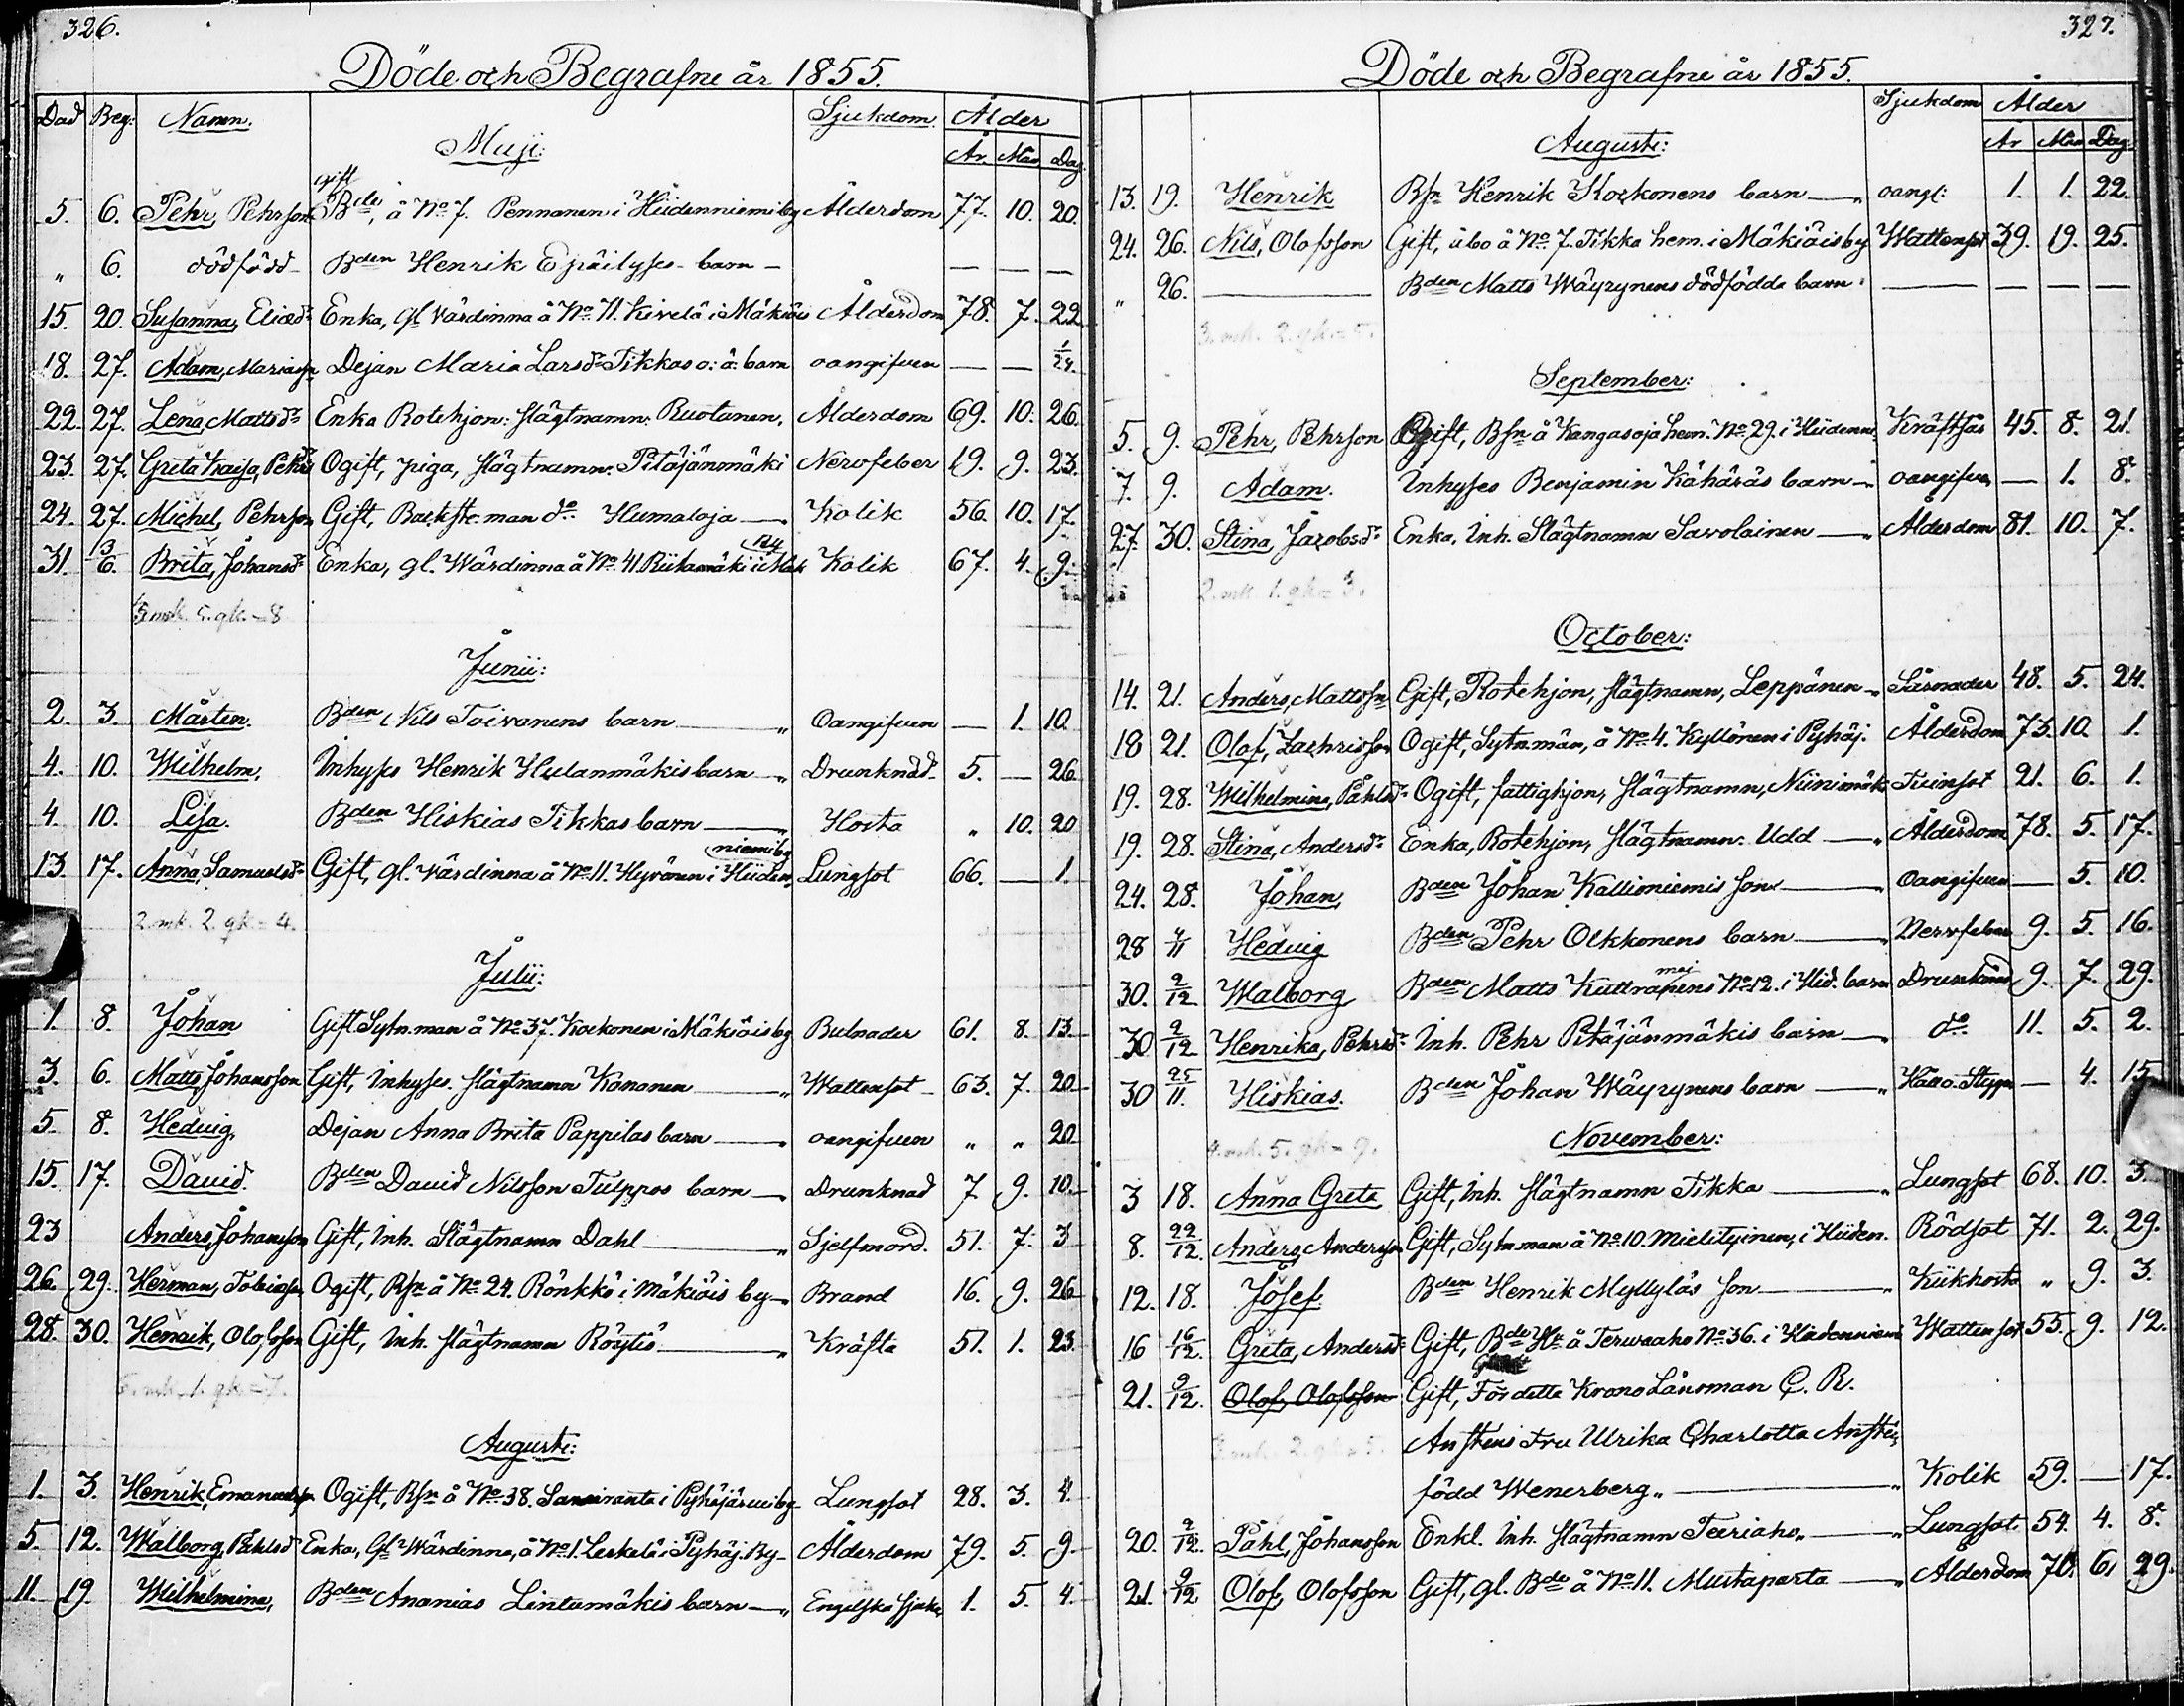 326.
Döde och Begrafne år 1855.
Död Beg: Namn. Sjukdom. Ålder
Maji: År. Mån. Dag.
gift
5. 6. Pehr, Pehrson Bde, å No 7. Pennanen i Hiidenniemi by Ålderdom 77. 10. 20.
" 6. dödfödd Bden Henrik Epäilyses barn — — — —
15. 20. Susanna, Eliædr Enka, gl. Värdinna å No 11. Kivelä i Mäkiöis Ålderdom 78. 7. 22.
18. 27. Adam, Mariason Dejan Maria Larsdr Tikkas o: ä: barn oangifven — — 1/24.
22. 27. Lena, Mattsdr Enka Rotehjon: slägtnamn: Ruotanen. Ålderdom 69. 10. 26.
23. 27. Greta Kaisa, Pehrsd Ogift, piga, slägtnamn: Pitäjänmäki Nervfeber 19. 9. 23.
24. 27. Michel, Pehrson Gift, Backste. man do Humaloja — Kolik 56. 10. 17.
by
31. 3/6. Brita, Johansdr Enka, gl. Wärdinna å No 41. Riikamäki i Mäk Kolik 67. 4. 9.
3 mk. 5. qk. = 8
Junii:
2. 3. Mårten. Bden Nils Toivanens barn — " Oangifven — 1. 10.
4. 10. Wilhelm. Inhyses Henrik Hulanmäkis barn — " Drunknad 5. — 26.
4. 10. Lisa. Bden Hiskias Tikkas barn — " Hosta " 10. 20
niemi by
13. 17. Anna Samuelsdr Gift, gl. Värdinna å No 11. Hyvönen i Hiiden Lungsot 66. — 1.
2 mk. 2 qk = 4.
Julii:
1. 8. Johan Gift Sytn. man å No 37. Kockonen i Mäkiöis by Bulnader 61. 8. 13.
3. 6. Matts Johansson Gift, Inhyses. slägtnamn Kononen — " Wattensot 63. 7. 20
5. 8. Hedvig. Dejan Anna Brita Pappilas barn — " oangifven " " 20
15. 17. David. Bden David Nilsson Tulppos barn — " Drunknad 7 9. 10.
23 Anders Johansson Gift, Inh. Slägtnamn Dahl — " Sjelfmord. 51. 7. 3
26. 29. Herman, Tobiason Ogift, Bsn å No 24. Rönkkö i Mäkiöis by — Brand 16. 9. 26
28. 30. Henrik, Olofsson Gift, Inh. slägtnamn Röytiö — " Kräfta 51. 1. 23.
6. mk. 1. qk = 7.
Augusti:
1. 3. Henrik, Emanuelsson Ogift, Bsn å No 38. Sansiranta i Pyhäjärvi by Lungsot 28. 3. 4.
5. 12. Walborg, Påhlsdr Enka, Gl Wärdinna, å No 1. Leskelä i Pyhäj. By Ålderdom 79. 5. 9.
11. 19. Wilhelmina, Bden Ananias Lintumäkis barn — " Engelska sjuka 1. 5. 4.
327.
Döde och Begrafne år 1855.
Sjukdom Ålder
Augusti: År Mån Dag
13. 19. Henrik Bsn Henrik Kockonens barn — " oangf: 1. 1. 22.
24. 26. Nils, Olofsson Gift, åbo å No 7. Tikka hem. i Mäkiöis by Wattensot 39. 19. 25.
" 26. — Bden Matts Wäyrynens dödfödda barn — — — —
3. mk. 2. qk. = 5.
September:
5. 9. Pehr, Pehrson Ogift, Bsn å Kangasoja hem. No 29. i Hiidenn. Kräftsår 45. 8. 21.
7. 9. Adam. Inhyses Benjamin Kähäräs barn — " oangifven — 1. 8.
27. 30. Stina, Jacobsdr Enka, Inh. Slägtnamn Savolainen — " Ålderdom 81. 10. 7.
2. mk. 1. qk = 3.
October:
14. 21. Anders, Mattsson Gift, Rotehjon, slägtnamn, Leppänen " Sårnader 48. 5. 24.
18 21. Olof, Zachrisson Ogift, Sytn. män, å No 4. Kyllönen i Pyhäj. Ålderdom 73. 10 1.
19. 28. Wilhelmina, Påhlsdr Ogift, fattighjon, slägtnamn, Niinimäki Tvinsot 21. 6. 1.
19. 28. Stina, Andersdr Enka, Rotehjon, slägtnamn: Udd — " Ålderdom 78. 5. 17.
24. 28. Johan, Bden Johan Kallioniemis son — " Oangifven — 5. 10.
28 4/11 Hedvig Bden Pehr Olkkonens barn — " Nervfeber 9. 5. 16.
30. 2/12 Walborg Bden Matts Kuttrapens No 12. i Hid. barn Drunknad 9. 7. 29.
30 2/12 Henrika, Pehrsdr Inh. Pehr Pitäjänmäkis barn — " do 11. 5. 2.
30 25/11. Hiskias. Bden Johan Wäyrynens barn — " Håll o. Styng — 4. 15
4. mk. 5. qk = 9.
November:
3 18. Anna Greta Gift, Inh. slägtnamn Tikka — " Lungsot 68. 10. 3.
8. 22/12. Anders, Andersson Gift, Sytn. man å No 10. Mielityinen, i Hiiden. Rödsot 71. 2. 29.
12. 18. Josef. Bden Henrik Myllyläs son — " Kikhosta " 9. 3.
16 16/12. Greta, Andersdr Gift, Bde Hu å Terwaaho No 36. i Hiidenniemi Wattensot 55. 9. 12.
21. 9/12. Olof, Olofsson Gift, Fördette Krono Länsman C. R.
Ansténs Fru Ulrika Charlotta Anstén,
född Wenerberg. — " Kolik 59. — 17.
20. 2/12. Påhl, Johansson Enkl. Inh. slägtnamn Teeriaho. — " Lungsot. 54. 4. 8.
21. 9/12 Olof, Olofsson Gift, gl. Bde å No 11. Mustaparta — " Ålderdom 70. 6. 29.